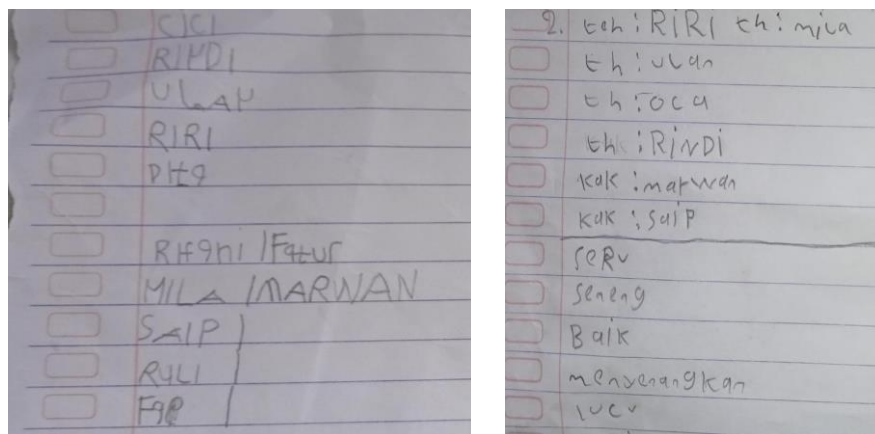 CICI
RINDI
ULAN
RIRI
RItANI / FAtUr
MILA / MARWAN
SAIP )
RULI
2. teh : RiRi th : mila
th : ulan
th : oca
th : RiNDi
kak : marwan
kak : saip
seRu
seneng
Baik
menyenangkan
lucu